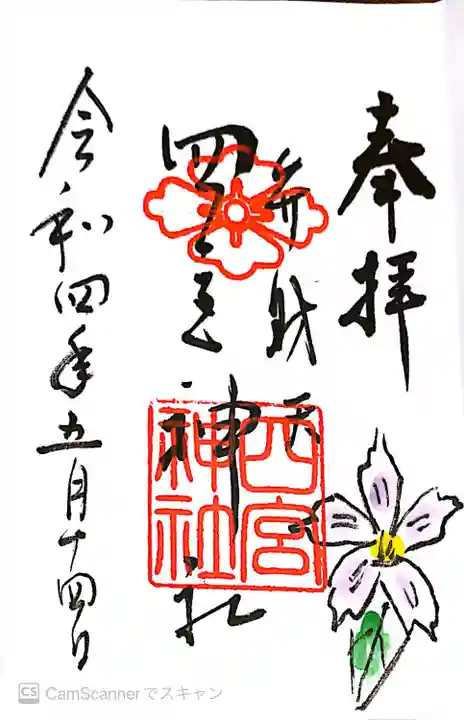 奉拝
弁財天
四宮神社
四宮
神社
令和四年五月十四日
CS CamScannerでスキャン